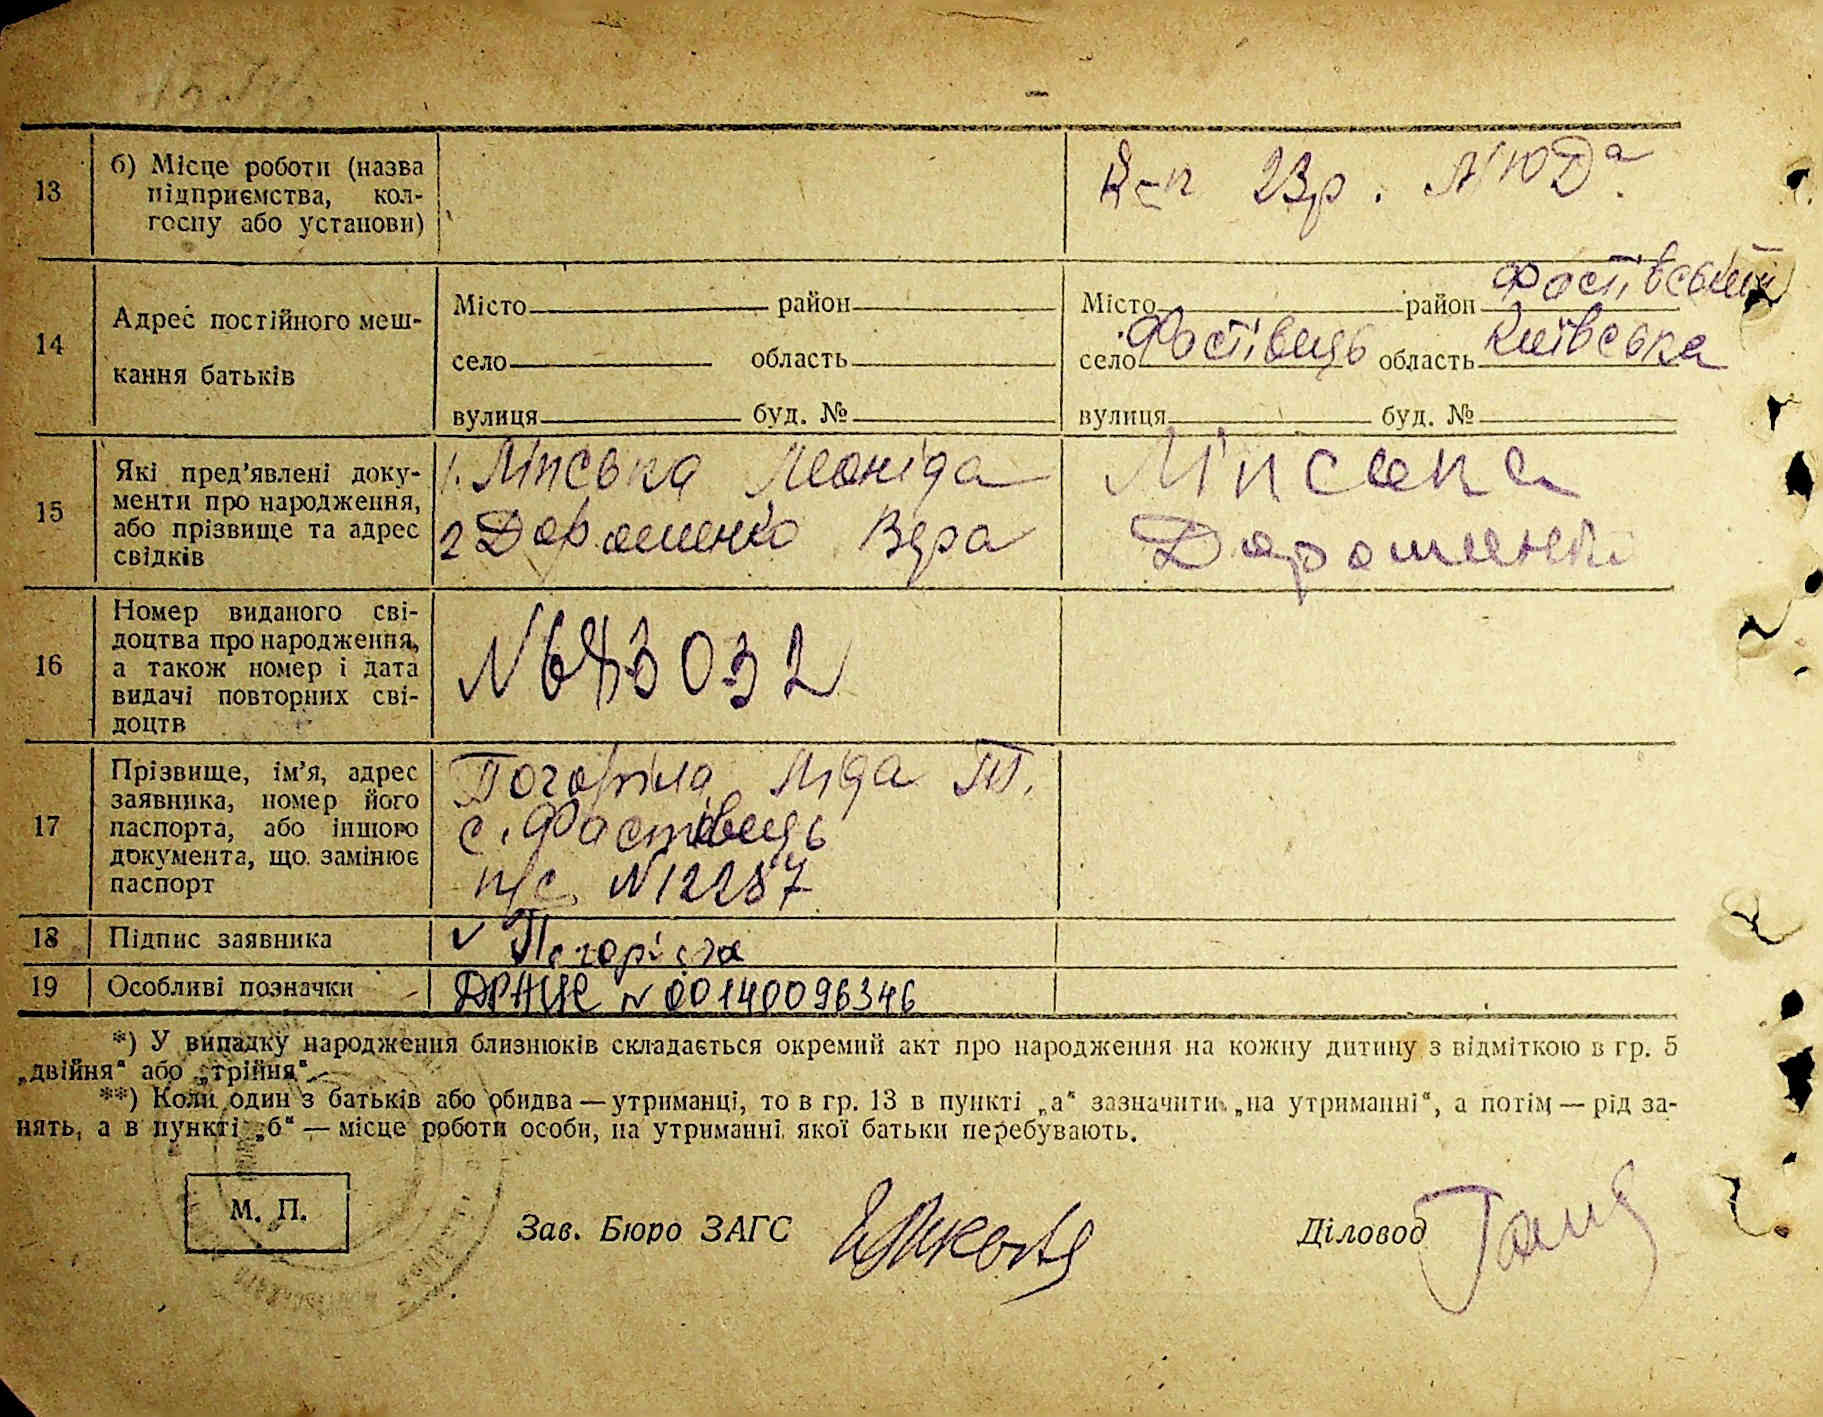 13
б) Місце роботи (назва
підприємства, кол-
госпу або установи)
14
Адрес постійного меш-
кання батьків
Місто район
село область
вулиця буд. №
Місто район Фастівський
село Фастівець область Київська
вулиця буд. №
15
Які пред'явлені доку-
менти про народження,
або прізвище та адрес
свідків
1. Ліпська Леоніда
2 Дорошенко Віра
Ліпська
Дорошенко
16
Номер виданого сві-
доцтва про народження,
а також номер і дата
видачі повторних сві-
доцтв
17
Прізвище, ім'я, адрес
заявника, номер його
паспорта, або іншого
документа, що замінює
паспорт
Погоріла Ліда
с. Фастівець
п/с N12287
18
Підпис заявника
Погоріла
19
Особливі позначки
N 00140096346
*) У випадку народження близнюків складається окремий акт про народження на кожну дитину з відміткою в гр. 5
„двійня“ або „трійня“.
**) Коли один з батьків або обидва — утриманці, то в гр. 13 в пункті „а“ зазначити „на утриманні“, а потім — рід за-
нять, а в пункті „б“ — місце роботи особи, на утриманні якої батьки перебувають.
М. П.
Зав. Бюро ЗАГС
Діловод